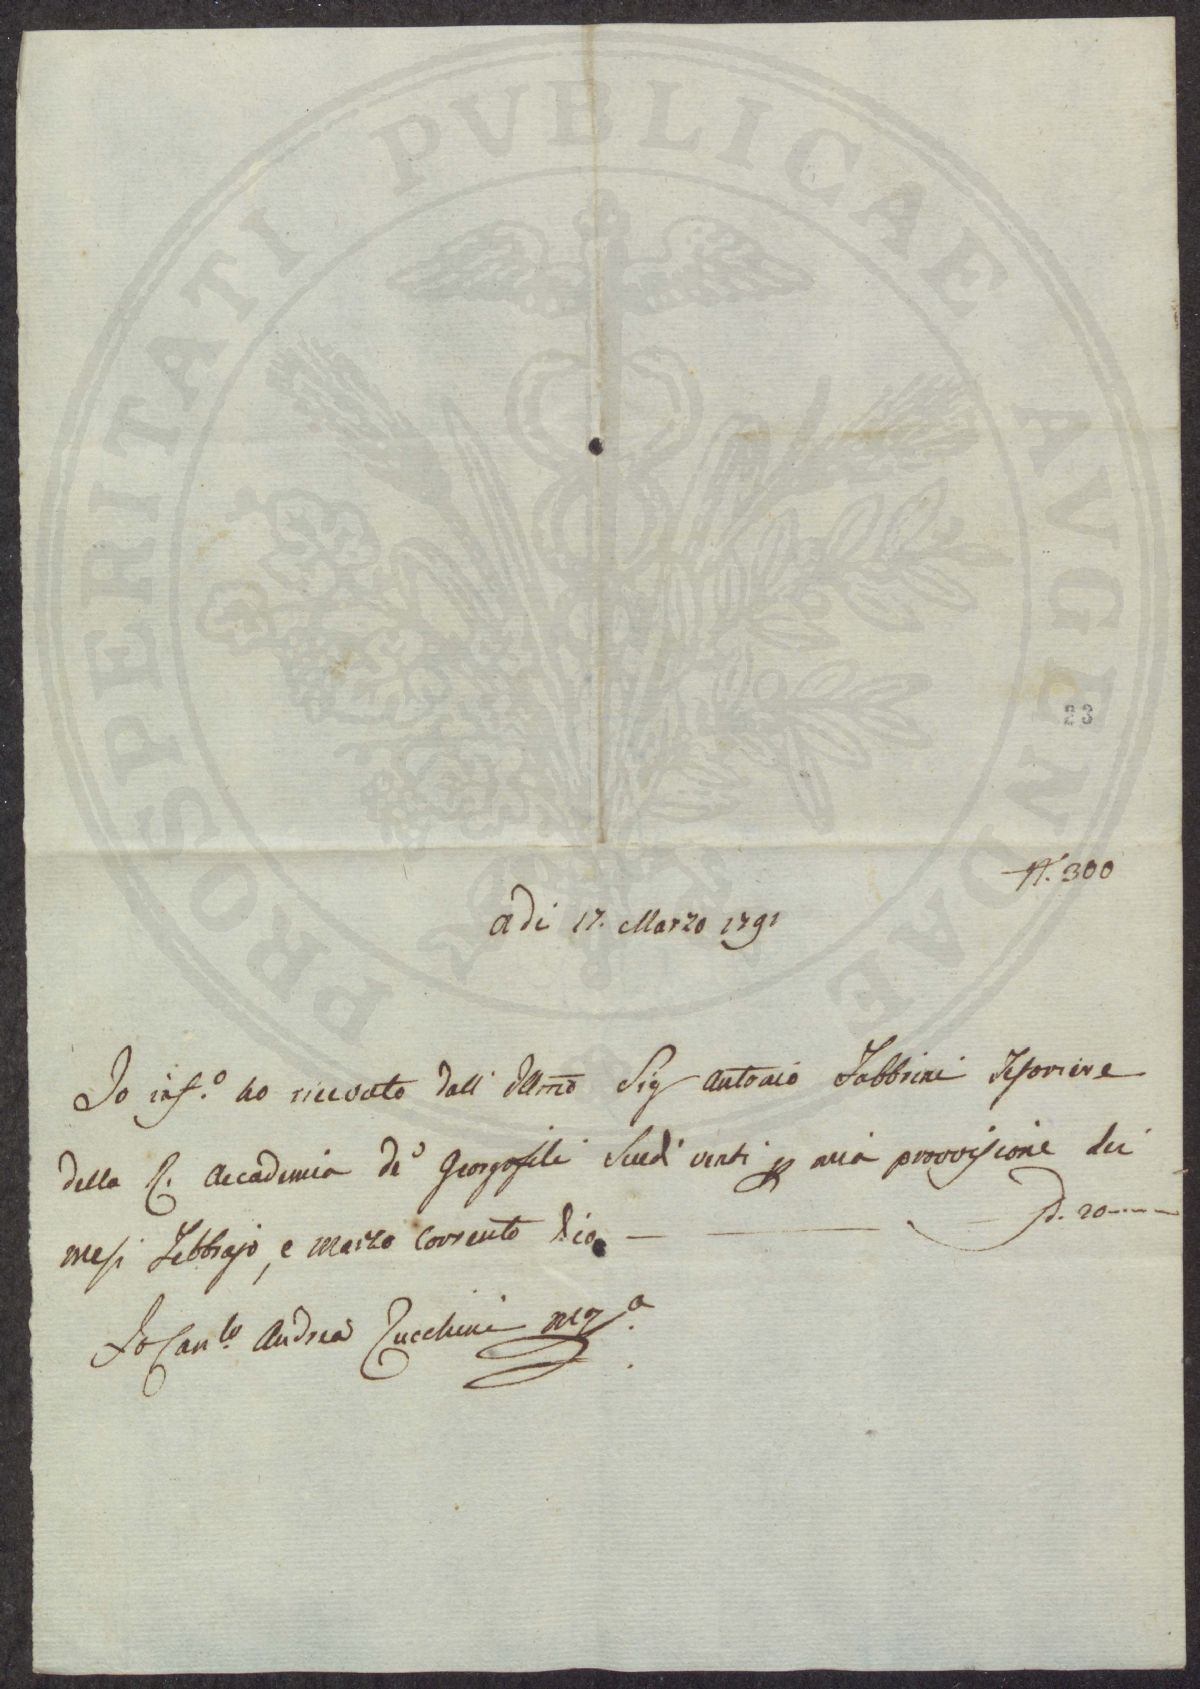 PROSPERITATI PUBLICAE AUGENDAE
23
N. 300
adi 17. Marzo 1791
Io inf.º ho ricevuto dall' Illmo Sig Antonio Fabbrini Tesoriere
della R. Accademia de' Georgofili Scudi venti p mia provvisione dei
mesi Febbrajo, e Marzo corrente dico — — — 20 — —
Io Can.co Andrea Zucchini mp.a